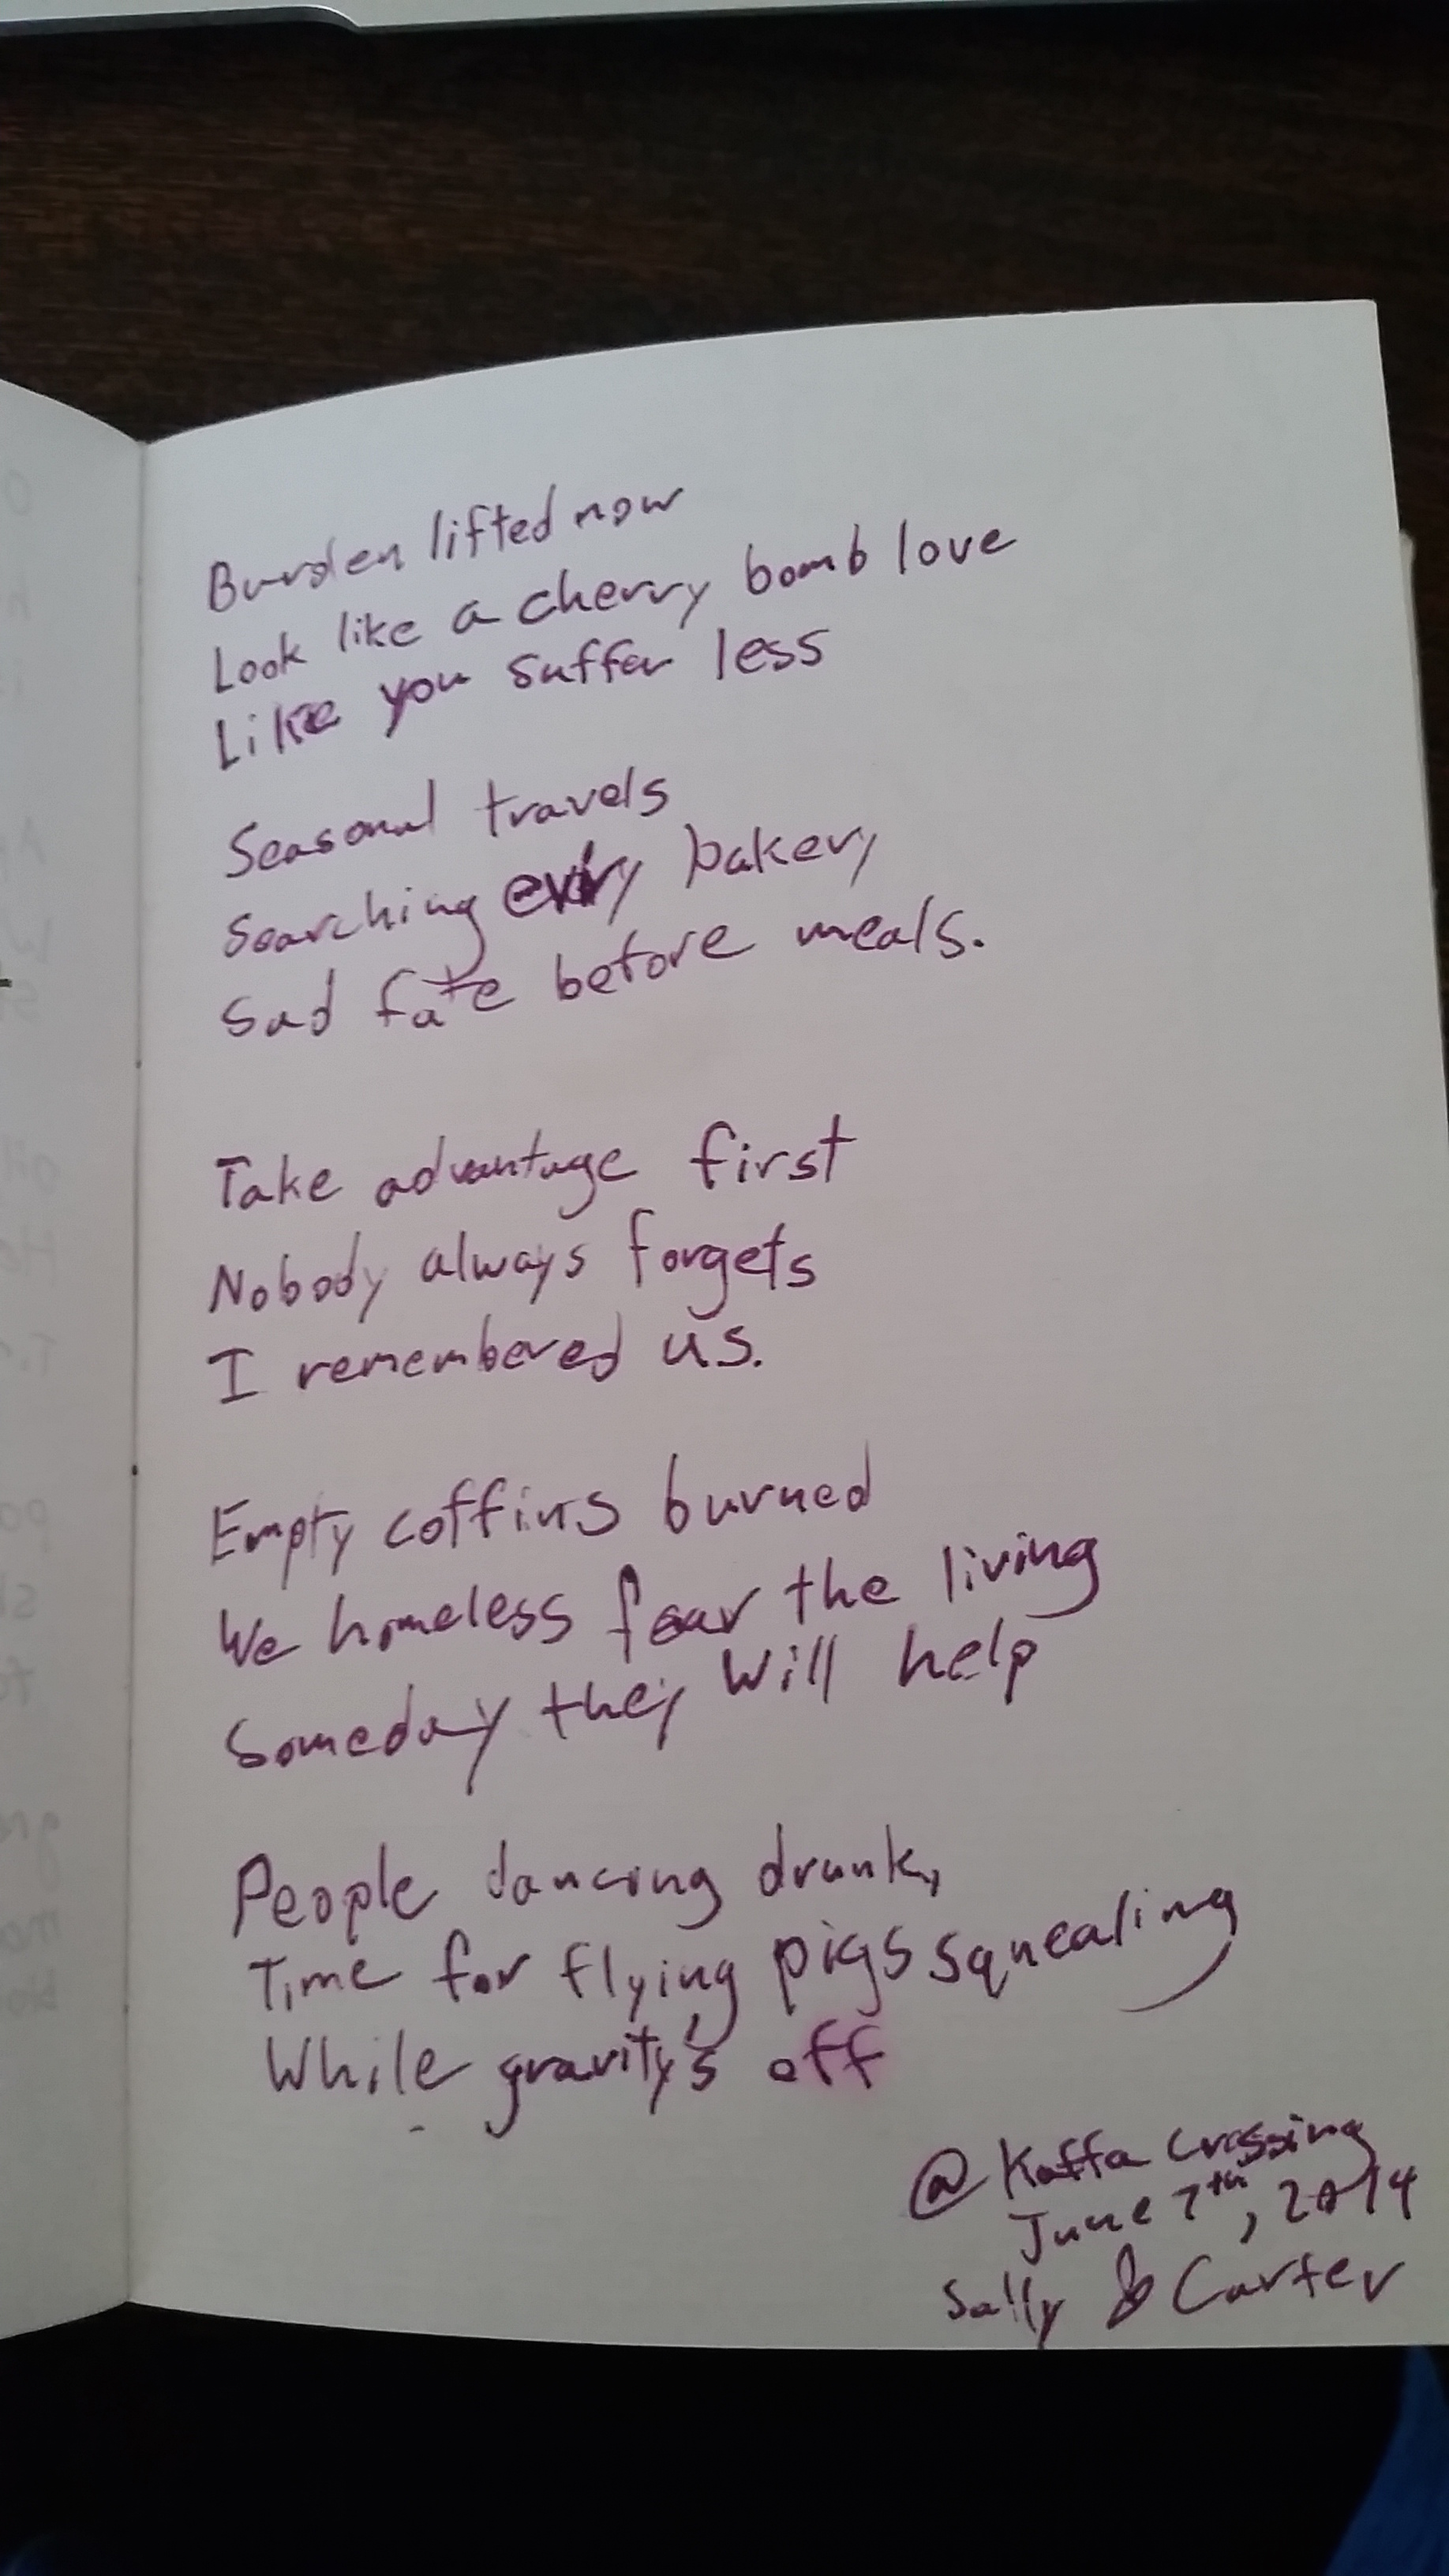 Burden lifted now
Look like a cherry bomb love
Like you suffer less
Seasonal travels
Searching every bakery
Sad fate before meals.
Take advantage first
Nobody always forgets
I remembered us.
Empty coffins burned
We homeless fear the living
Someday they will help
People dancing drunk,
Time for flying pigs squealing
While gravity's off
@ Kaffa Crossing
June 7th, 2014
Sally & Carter